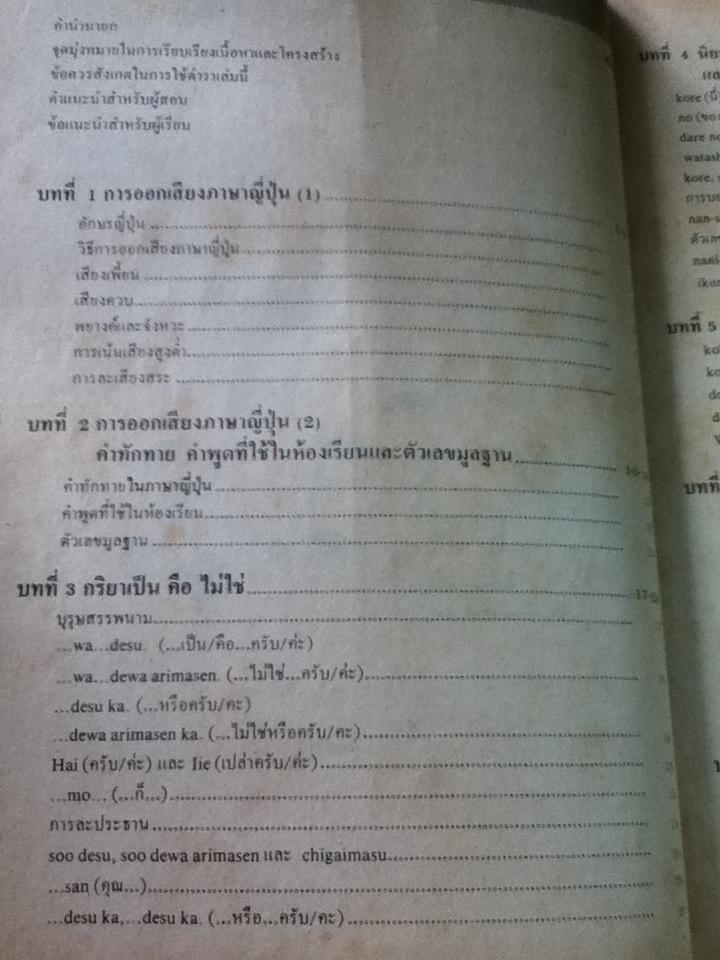 คำนำ
จุดมุ่งหมายในการเรียบเรียงเนื้อหาและโครงสร้าง
ข้อควรสังเกตในการใช้ตำราเล่มนี้
คำแนะนำสำหรับผู้สอน
ข้อแนะนำสำหรับผู้เรียน
บทที่ 1 การออกเสียงภาษาญี่ปุ่น (1)
อักษรญี่ปุ่น
วิธีการออกเสียงภาษาญี่ปุ่น
เสียงเพี้ยน
เสียงควบ
พยางค์และจังหวะ
การเน้นเสียงสูงต่ำ
การละเสียงสระ
บทที่ 2 การออกเสียงภาษาญี่ปุ่น (2)
คำทักทาย คำพูดที่ใช้ในห้องเรียนและตัวเลขมูลฐาน
คำทักทายในภาษาญี่ปุ่น
คำพูดที่ใช้ในห้องเรียน
ตัวเลขมูลฐาน
บทที่ 3 กริยาเป็น คือ ไม่ใช่
บุรุษสรรพนาม
...wa...desu. (...เป็น/คือ...ครับ/ค่ะ)
...wa...dewa arimasen. (...ไม่ใช่...ครับ/ค่ะ)
...desu ka. (...หรือครับ/คะ)
...dewa arimasen ka. (...ไม่ใช่หรือครับ/คะ)
Hai (ครับ/ค่ะ) และ Iie (เปล่าครับ/ค่ะ)
...mo... (...ก็...)
การละประธาน
soo desu, soo dewa arimasen และ chigaimasu
...san (คุณ...)
...desu ka,...desu ka. (...หรือ...ครับ/คะ)
บทที่ 4
kore
no
dare
kore,
บทที่ 5
บทที่